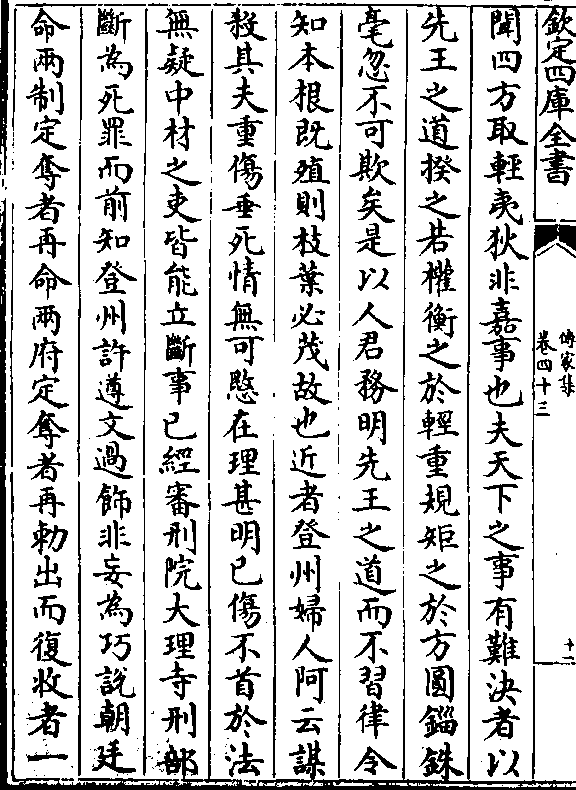 欽定四庫全書
傳家集
卷四十三
十二
聞四方取輕夷狄非嘉事也夫天下之事有難決者以
先王之道揆之若權衡之於輕重規矩之於方圓錙銖
毫忽不可欺矣是以人君務明先王之道而不習律令
知本根既殖則枝葉必茂故也近者登州婦人阿云謀
殺其夫重傷垂死情無可愍在理甚明已傷不首於法
無疑中材之吏皆能立斷事已經審刑院大理寺刑部
斷為死罪而前知登州許遵文過飾非妄為巧說朝廷
命兩制定奪者再命兩府定奪者再勑出而復收者一